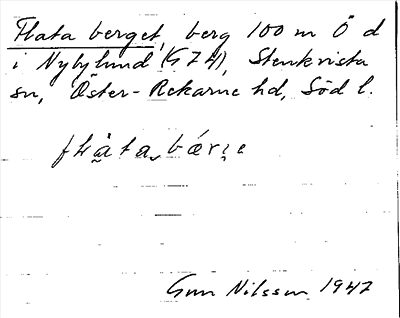 Flata berget, berg 100 m Ö d
i Nybylund (G 7 H), Stenkvista
sn, Öster-Rekarne hd, Söd l.
Gun Nilsson 1947